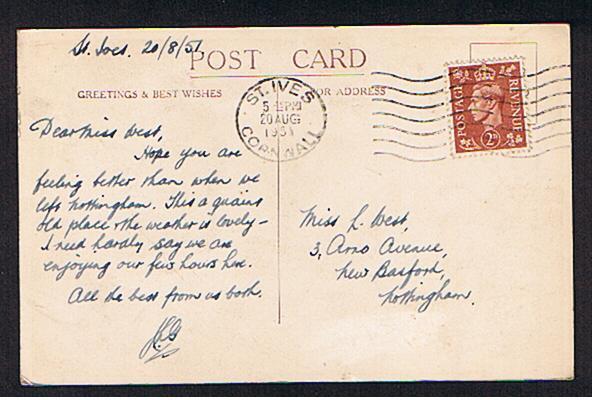 St. Ives. 20/8/51
POST CARD
GREETINGS & BEST WISHES
FOR ADDRESS
ST. IVES
5 - PM
20 AUG
1951
CORNWALL
POSTAGE
REVENUE
2D
Dear Miss West,
Hope you are
feeling better than when we
left Nottingham. This a quaint
old place & the weather is lovely -
I need hardly say we are
enjoying our few hours here.
All the best from us both.
Miss L. West,
3, Arno Avenue,
New Basford,
Nottingham.